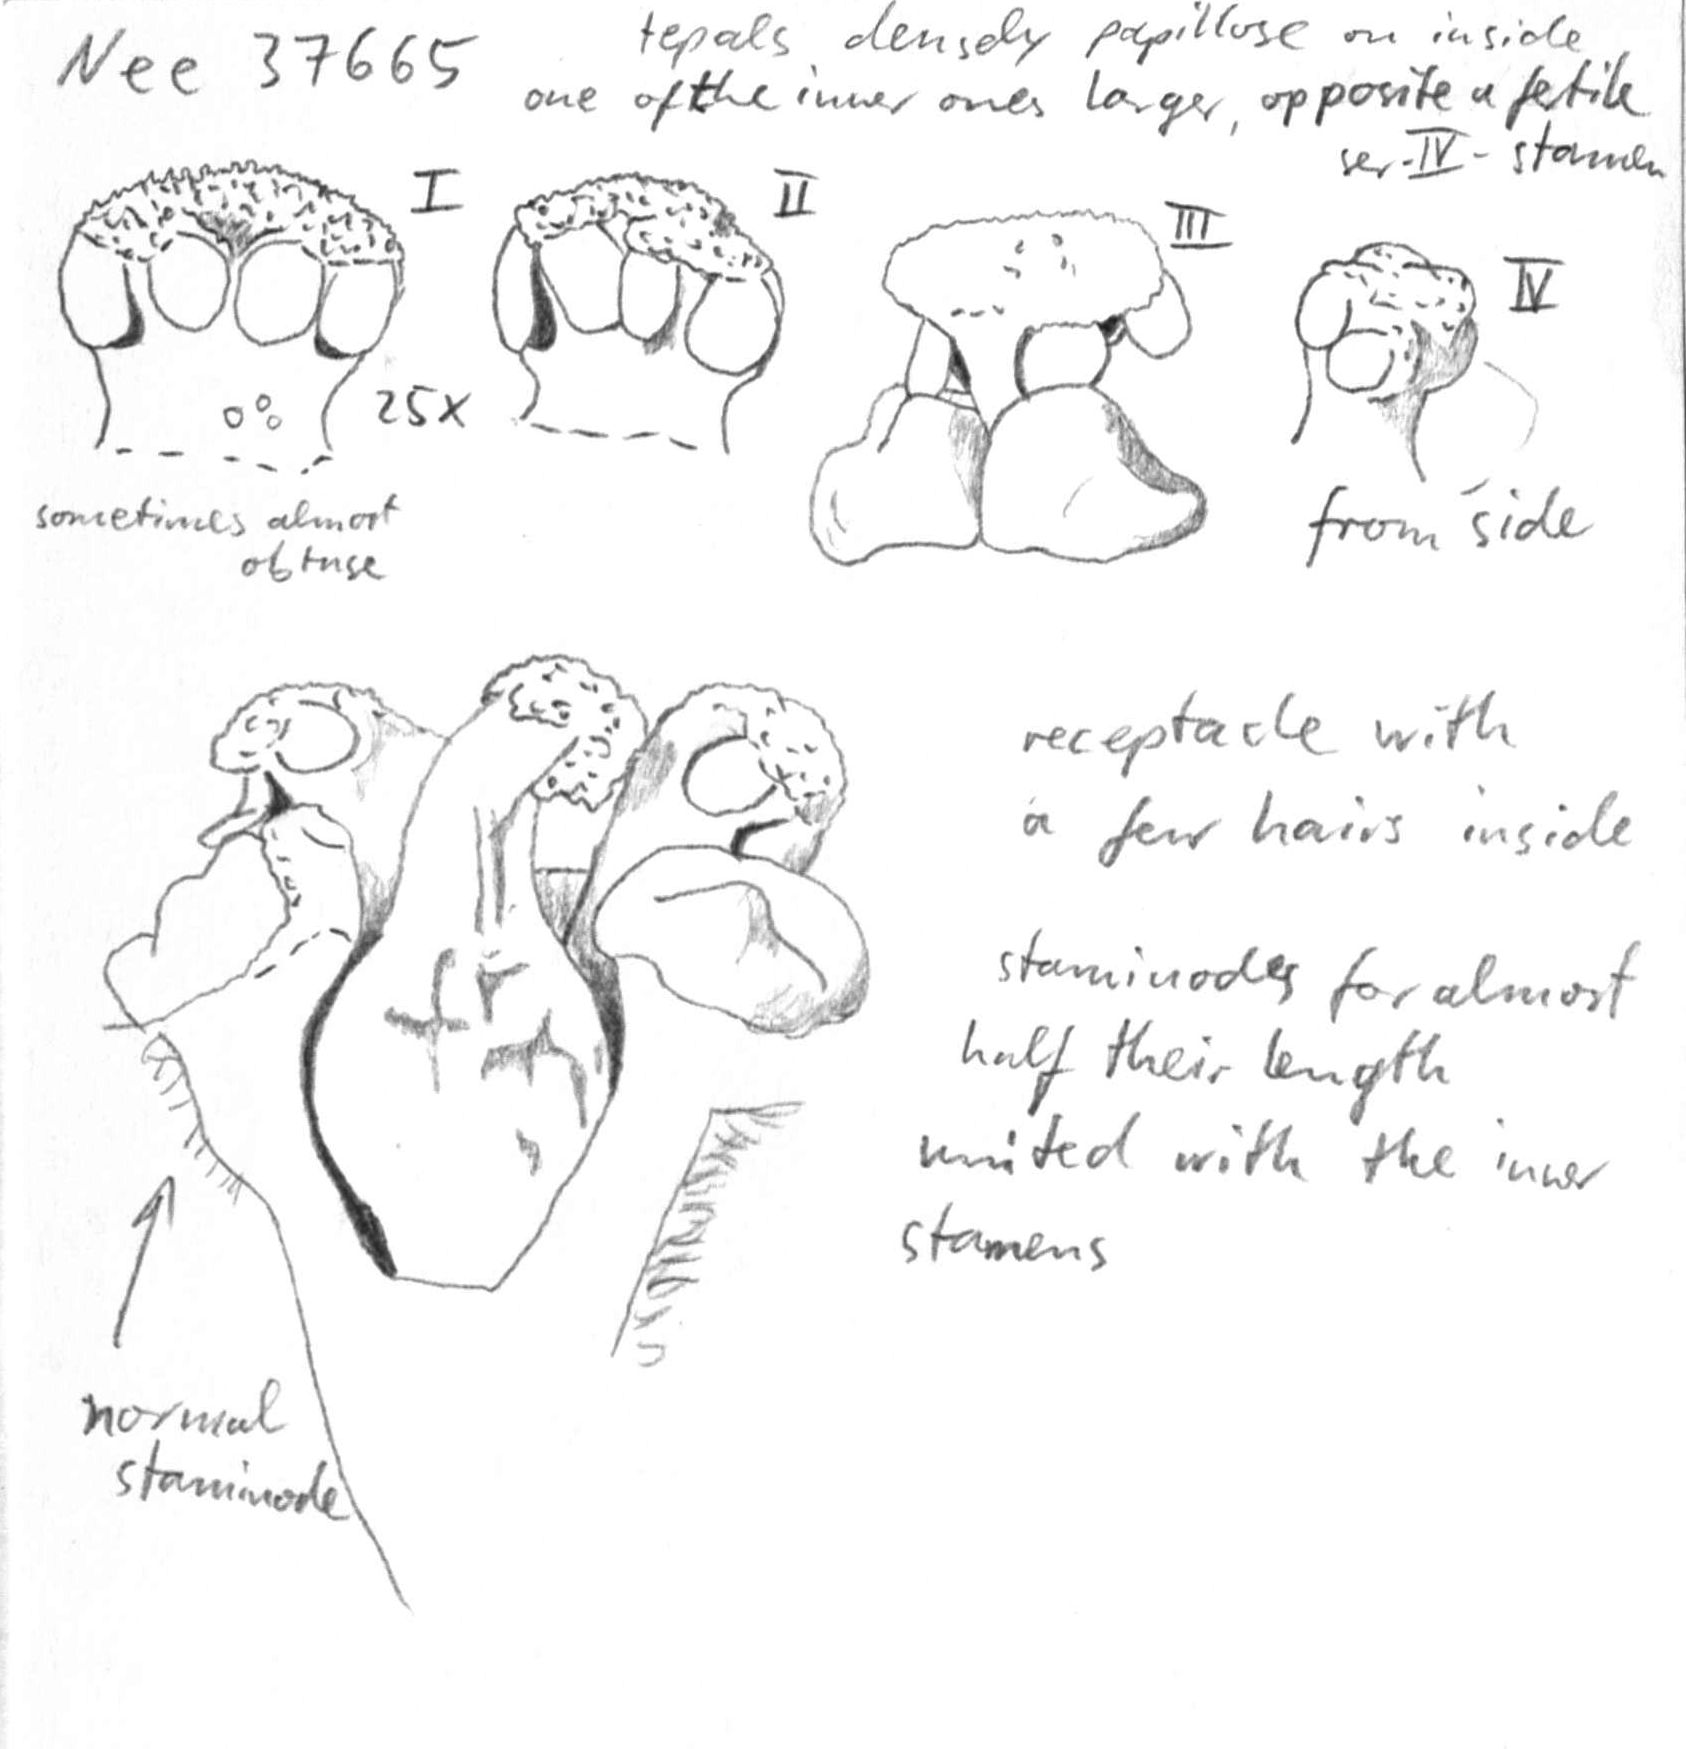 Nee 37665
tepals densely papillose on inside
one of the inner ones larger, opposite a fertile
ser-IV-stamen
I
II
III
IV
25x
sometimes almost
obtuse
from side
receptacle with
a few hairs inside
staminodes for almost
half their length
united with the inner
stamens
normal
staminode